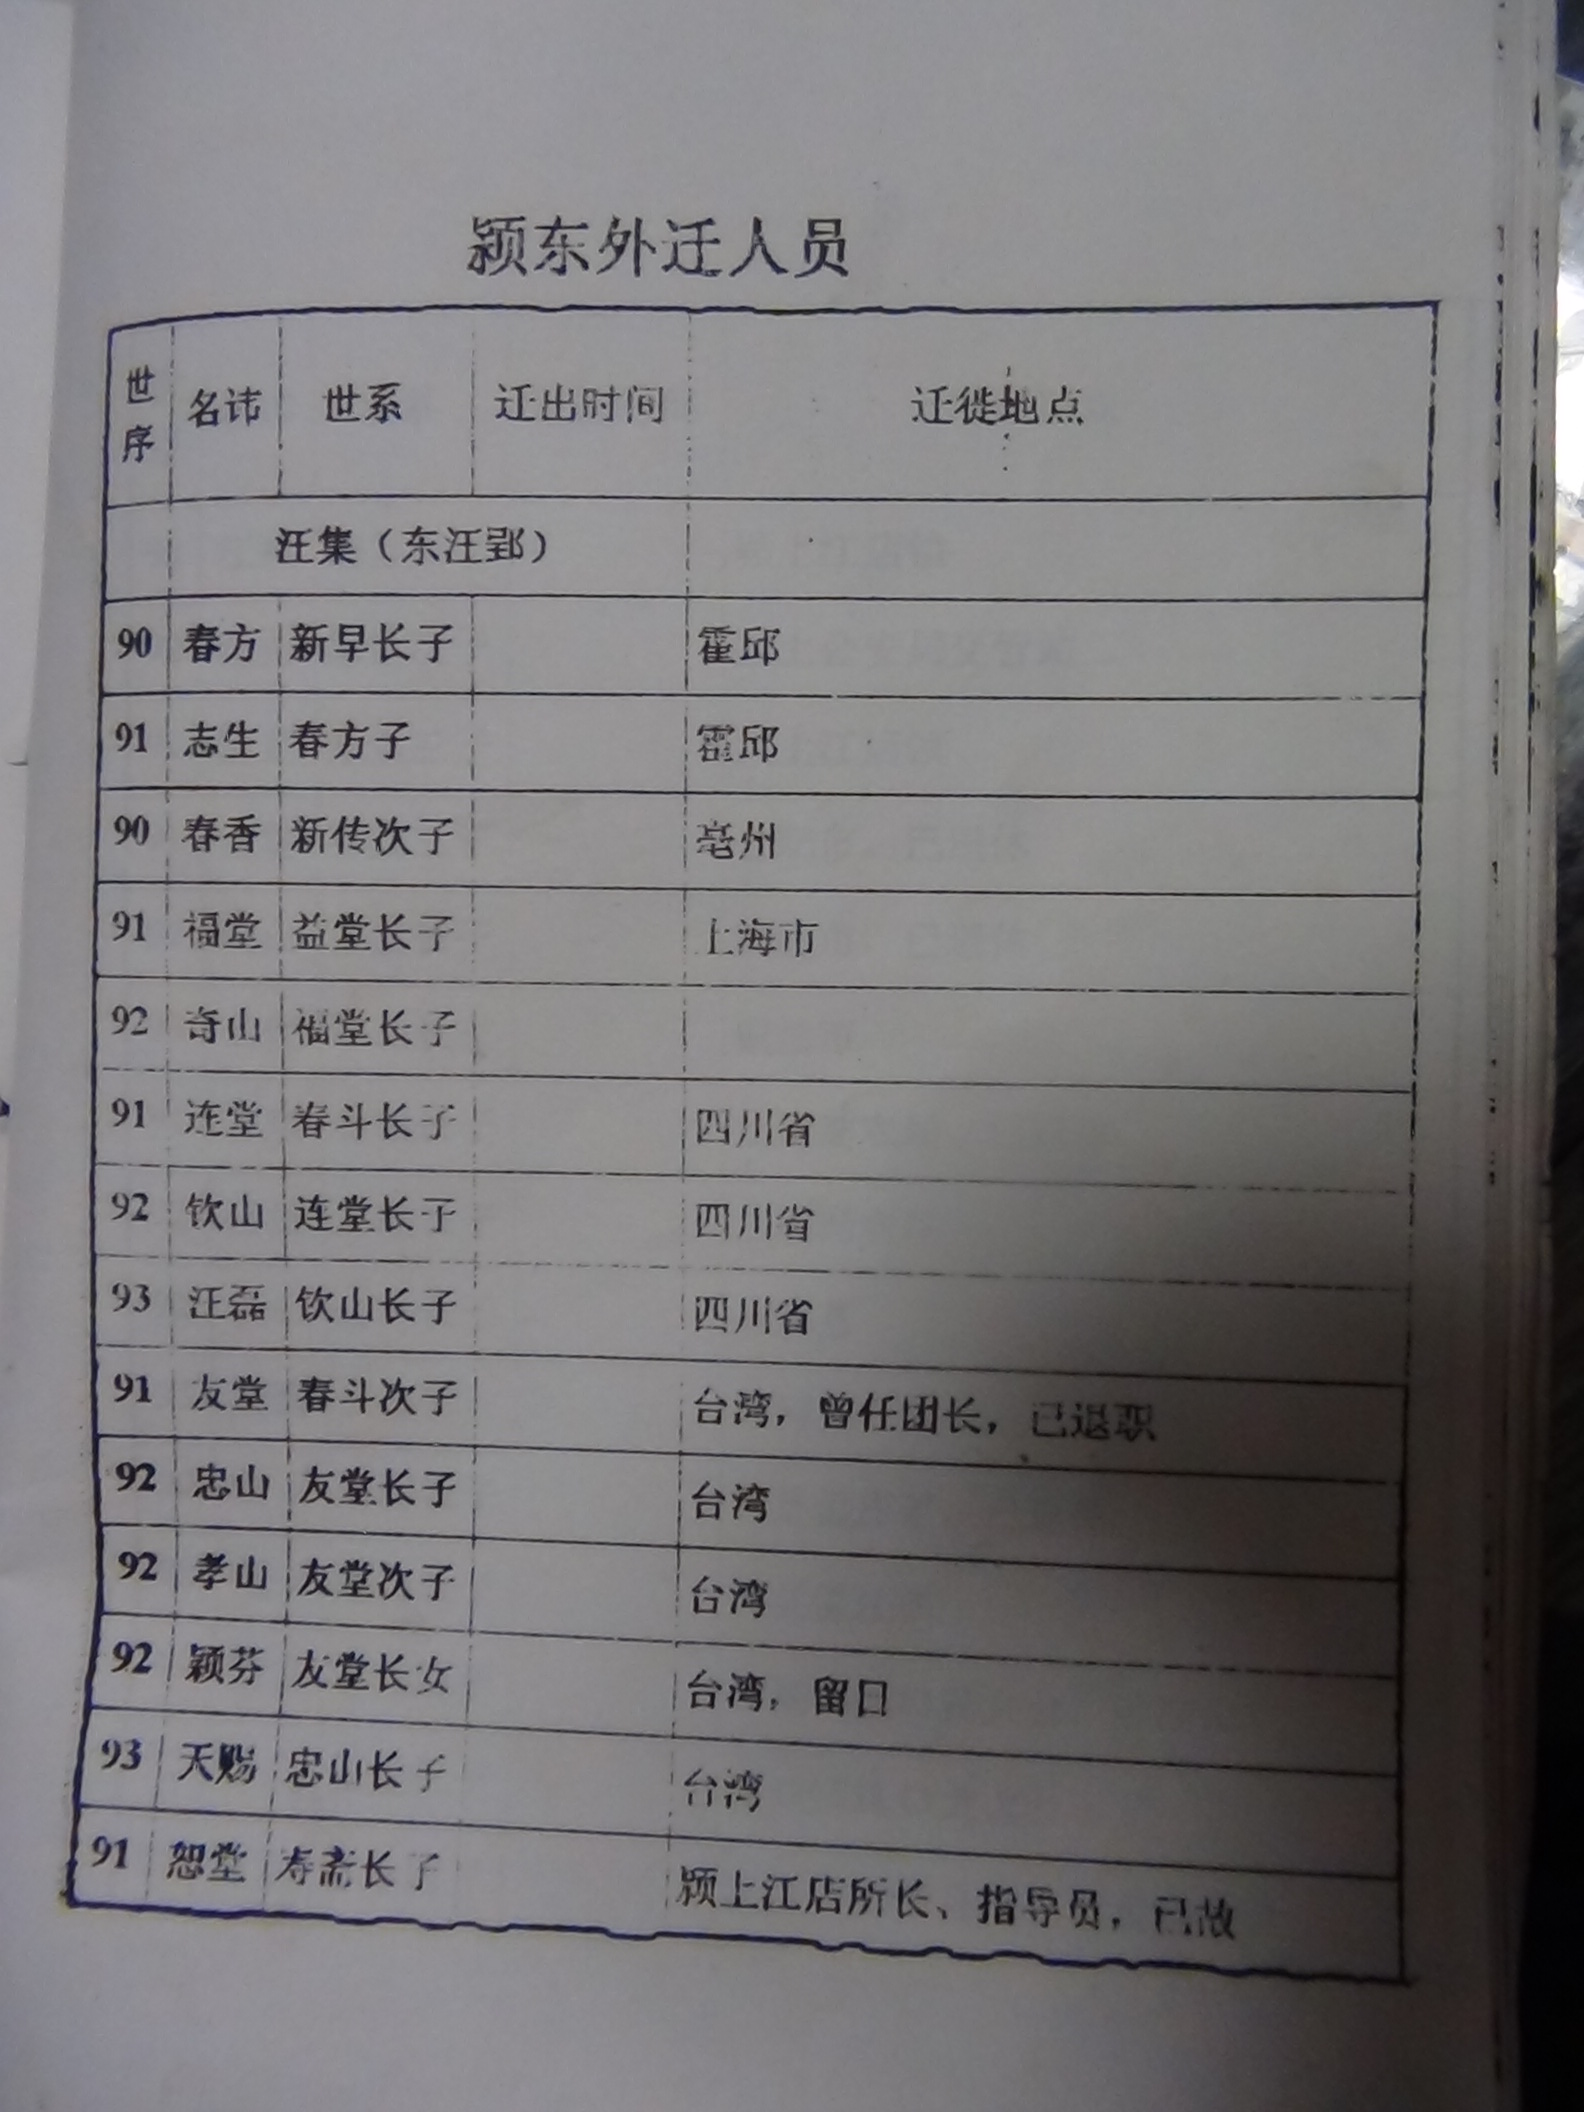 颍东外迁人员
世序 名讳 世系 迁出时间 迁徙地点
汪集（东汪郢）
90 春方 新早长子 霍邱
91 志生 春方子 霍邱
90 春香 新传次子 亳州
91 福堂 益堂长子 上海市
92 奇山 福堂长子
91 连堂 春斗长子 四川省
92 钦山 连堂长子 四川省
93 汪磊 钦山长子 四川省
91 友堂 春斗次子 台湾，曾任团长，已退职
92 忠山 友堂长子 台湾
92 孝山 友堂次子 台湾
92 颖芬 友堂长女 台湾，留日
93 天赐 忠山长子 台湾
91 恕堂 寿斋长子 颍上江店所长、指导员，已故